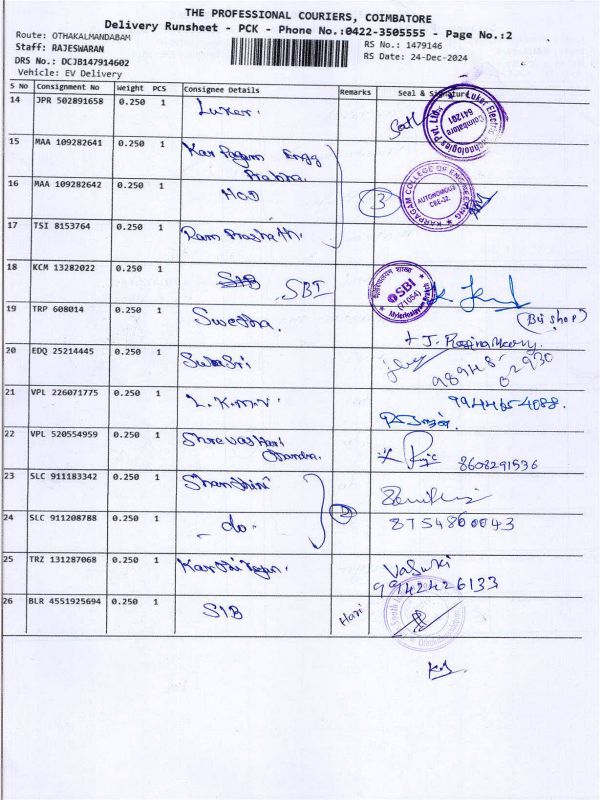 THE PROFESSIONAL COURIERS, COIMBATORE
Delivery Runsheet - PCK - Phone No.:0422-3505555 - Page No.:2
Route: OTHAKALMANDABAM
RS No.: 1479146
Staff: RAJESWARAN
RS Date: 24-Dec-2024
DRS No.: DCJB147914602
Vehicle: EV Delivery
S No Consignment No Weight PCS Consignee Details Remarks Seal & Signature
14 JPR 502891658 0.250 1 Luker.
Luker Electric Technologies Pvt. Ltd. Coimbatore 641201
15 MAA 109282641 0.250 1 Karpagam Engg
Prabha.
16 MAA 109282642 0.250 1 HOD 3
KARPAGAM COLLEGE OF ENGINEERING
AUTONOMOUS
CBE-32.
17 TSI 8153764 0.250 1 Ram Prashath.
18 KCM 13282022 0.250 1 SIB SBI
SBI
(71054)
19 TRP 608014 0.250 1 Swetha.
+ J.
20 EDQ 25214445 0.250 1
98948 02930
21 VPL 226071775 0.250 1 L.K.M.V.
9944654088.
22 VPL 520554959 0.250 1 Shrevas Hari
Chandra. 8608291536
23 SLC 911183342 0.250 1 Shanthini
24 SLC 911208788 0.250 1 - do - 2 8754860043
25 TRZ 131287068 0.250 1 Vasuki
9942426133
26 BLR 4551925694 0.250 1 SIB Hari